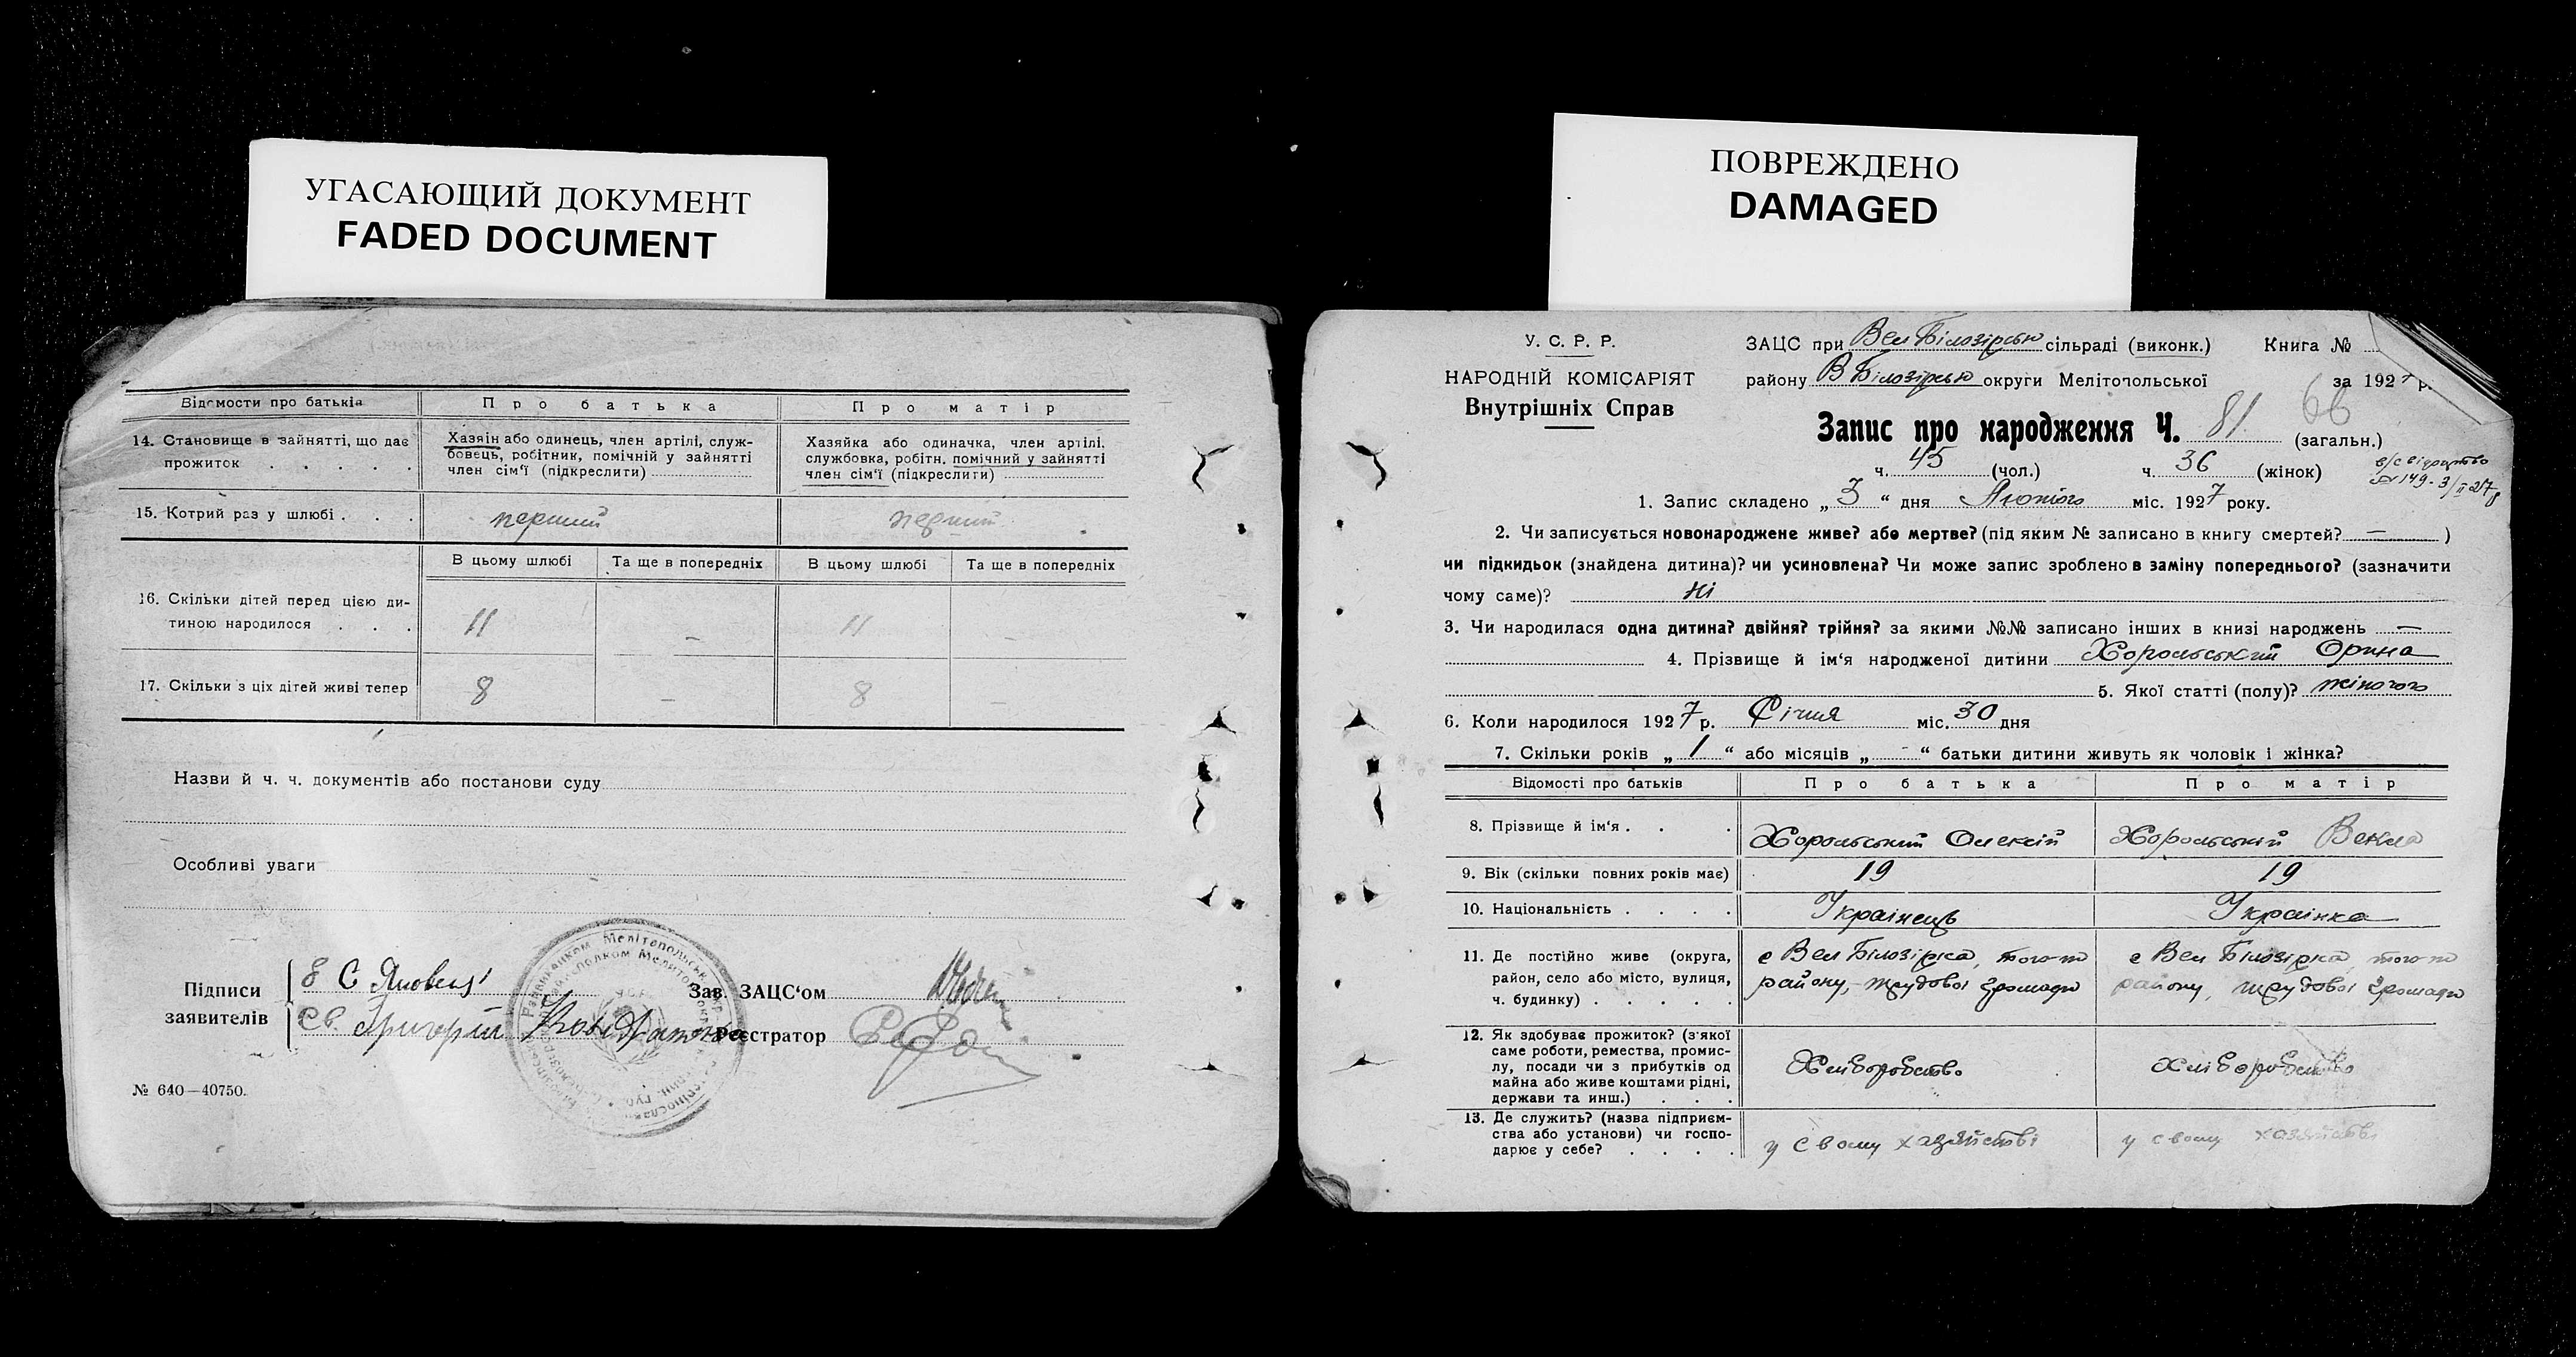 УГАСАЮЩИЙ ДОКУМЕНТ
FADED DOCUMENT
Відомости про батьків
Про батька
Про матір
14. Становище в зайнятті, що дає прожиток . . . . .
Хазяін або одинець, член артілі, служ-
бовець, робітник, помічній у зайнятті
член сім'ї (підкреслити)
Хазяйка або одиначка, член артілі,
службовка, робітн. помічний у зайнятті
член сім'ї (підкреслити)
15. Котрий раз у шлюбі . . .
перший
перший
В цьому шлюбі
Та ще в попередніх
В цьому шлюбі
Та ще в попередніх
16. Скільки дітей перед цією ди-
тиною народилося . . .
11
–
11
–
17. Скільки з ціх дітей живі тепер
8
–
8
–
Назви й ч. ч. документів або постанови суду
Особливі уваги
Підписи
заявителів
Св Григорій
Зав. ЗАЦС'ом
Реєстратор
№ 640—40750.
ПОВРЕЖДЕНО
DAMAGED
У. С. Р. Р.
НАРОДНІЙ КОМІСАРІЯТ
Внутрішніх Справ
ЗАЦС при Вел Білозірсью сільраді (виконк.) Книга №
району В Білозірсью округи Мелітопольської за 1927 р.
66
Запис про народження Ч. 81 (загальн.)
ч. 45 (чол.) ч. 36 (жінок)
№ 149 - 3/II 27 р
1. Запис складено „3“ дня Лютого міс. 1927 року.
2. Чи записується новонароджене живе? або мертве? (під яким № записано в книгу смертей? — )
чи підкидьок (знайдена дитина)? чи усиновлена? Чи може запис зроблено в заміну попереднього? (зазначити
чому саме)? ні
3. Чи народилася одна дитина? двійня? трійня? за якими №№ записано інших в книзі народжень —
4. Прізвище й ім'я народженої дитини Хорольський Орина
5. Якої статті (полу)? жіночого
6. Коли народилося 1927 р. Січня міс. 30 дня
7. Скільки років „1“ або місяців „-“ батьки дитини живуть як чоловік і жінка?
Відомості про батьків
Про батька
Про матір
8. Прізвище й ім'я . . .
Хорольський Олексій
Хорольській Векла
9. Вік (скільки повних років має)
19
19
10. Національність . . . .
Українець
Українка
11. Де постійно живе (округа,
район, село або місто, вулиця,
ч. будинку) . . . . .
с Вел Білозірка, того-ж
району, трудової громади
с Вел Білозірка, того-ж
району, трудової громади
12. Як здобуває прожиток? (з'якої
саме роботи, ремества, промис-
лу, посади чи з прибутків од
майна або живе коштами рідні,
держави та инш.) . . .
Хліборобство
Хліборобство
13. Де служить? (назва підприєм-
ства або установи) чи госпо-
дарює у себе? . . . .
у свому хазяйстві
у свому хазяйстві